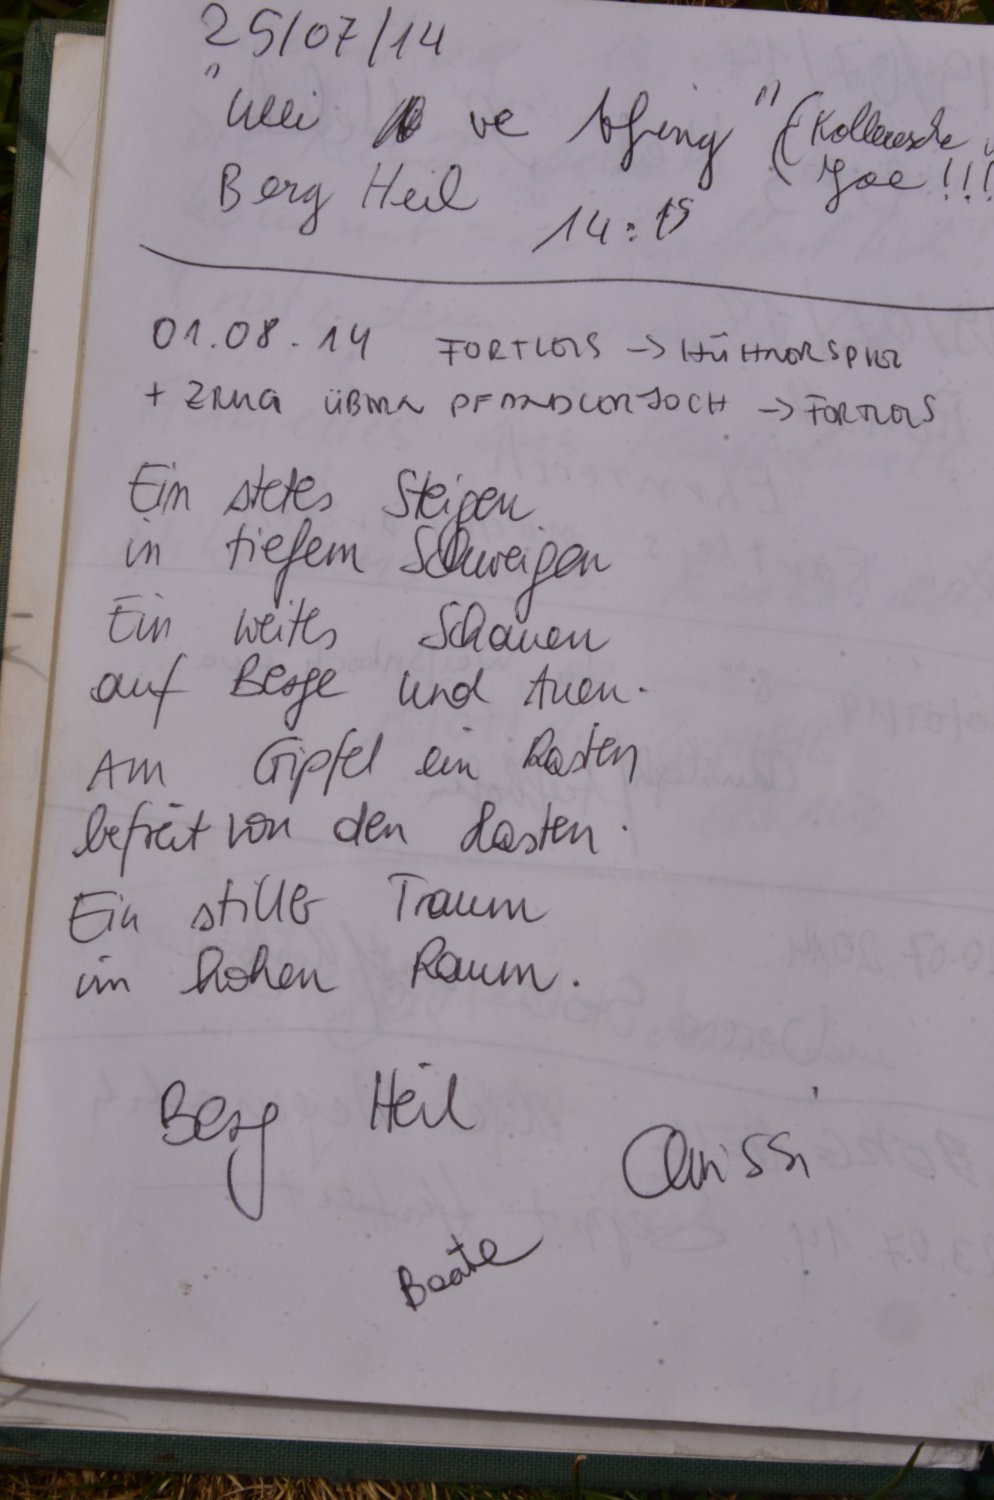 25/07/14
" ve "
Berg Heil
Joe!!!
14:15
01.08.14 FORTLEIS -> HÜHNERSPIEL
+ ZRUG ÜBER PFANDLERJOCH -> FORTLEIS
Ein stetes Steigen
in tiefem Schweigen
Ein weites Schauen
auf Berge und Auen.
Am Gipfel ein Rasten
befreit von den Lasten.
Ein stiller Traum
im hohen Raum.
Berg Heil
Chrissi
Beate